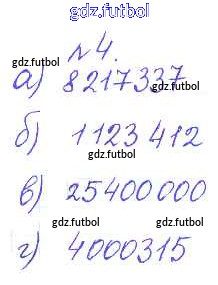 gdz.futbol
gdz.futbol
№4.
gdz.futbol
а) 8217337
gdz.futbol
б) 1123412
gdz.futbol
gdz.futbol
в) 25400000
gdz.futbol
г) 4000315
gdz.futbol